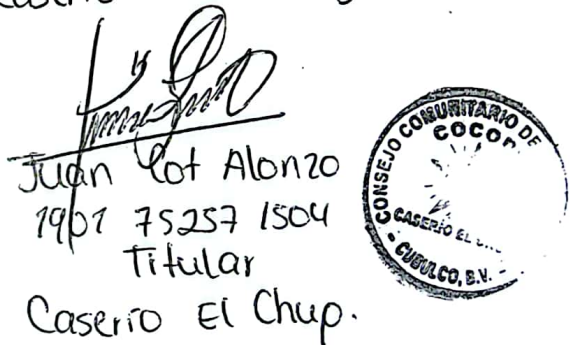 Juan Cot Alonzo
1901 75257 1504
Titular
Caserio El Chup.
CONSEJO COMUNITARIO DE
COCO
CASERIO EL
- CUBULCO, B.V. -